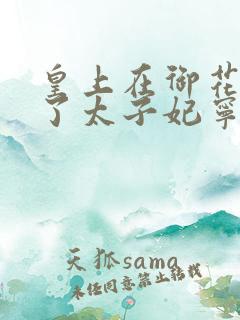 皇上在御花
了太子妃寧
天狐sama
未经同意禁止转载